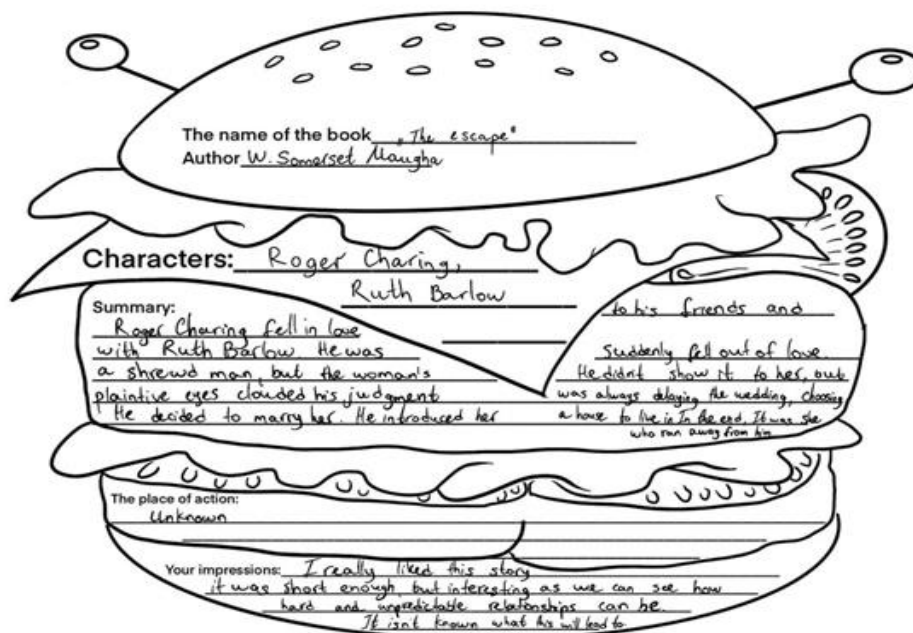 The name of the book „The escape"
Author W. Somerset Maugha
Characters: Roger Charing,
Ruth Barlow
Summary:
Roger Charing fell in love
with Ruth Barlow. He was
a shrewd man, but the woman's
plaintive eyes clouded his judgment
He decided to marry her. He introduced her
to his friends and
suddenly fell out of love.
He didn't show it to her, but
was always delaying the wedding, choosing
a house to live in In the end, It was she
who ran away from him
The place of action:
Unknown
Your impressions: I really liked this story
it was short enough, but interesting as we can see how
hard and unpredictable relationships can be.
It isn't known what this will lead to.